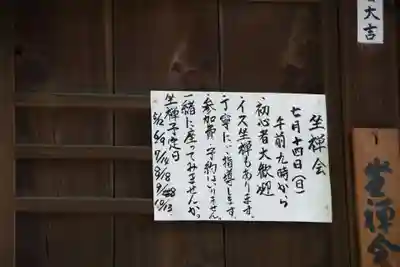 坐禅会
七月十四日(日)
午前九時から
・初心者大歓迎
・イス坐禅もあります。
・丁寧に指導します。
・参加希 予約はいりません。
一緒に座ってみませんか。
坐禅予定日
大吉
坐禅会